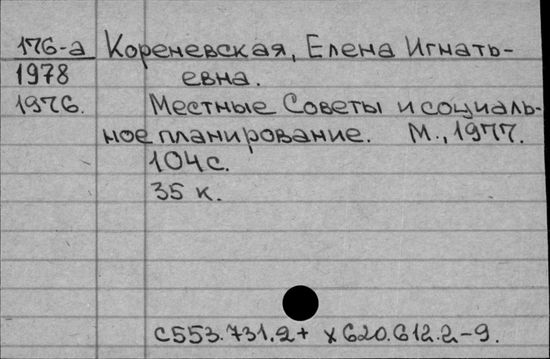 176-а Кореневская, Елена Игнать-
1978 евна.
1976. Местные Советы и социаль-
ное планирование. М., 1977.
104 с.
35 к.
С553.731.2+ х620.612.2-9.